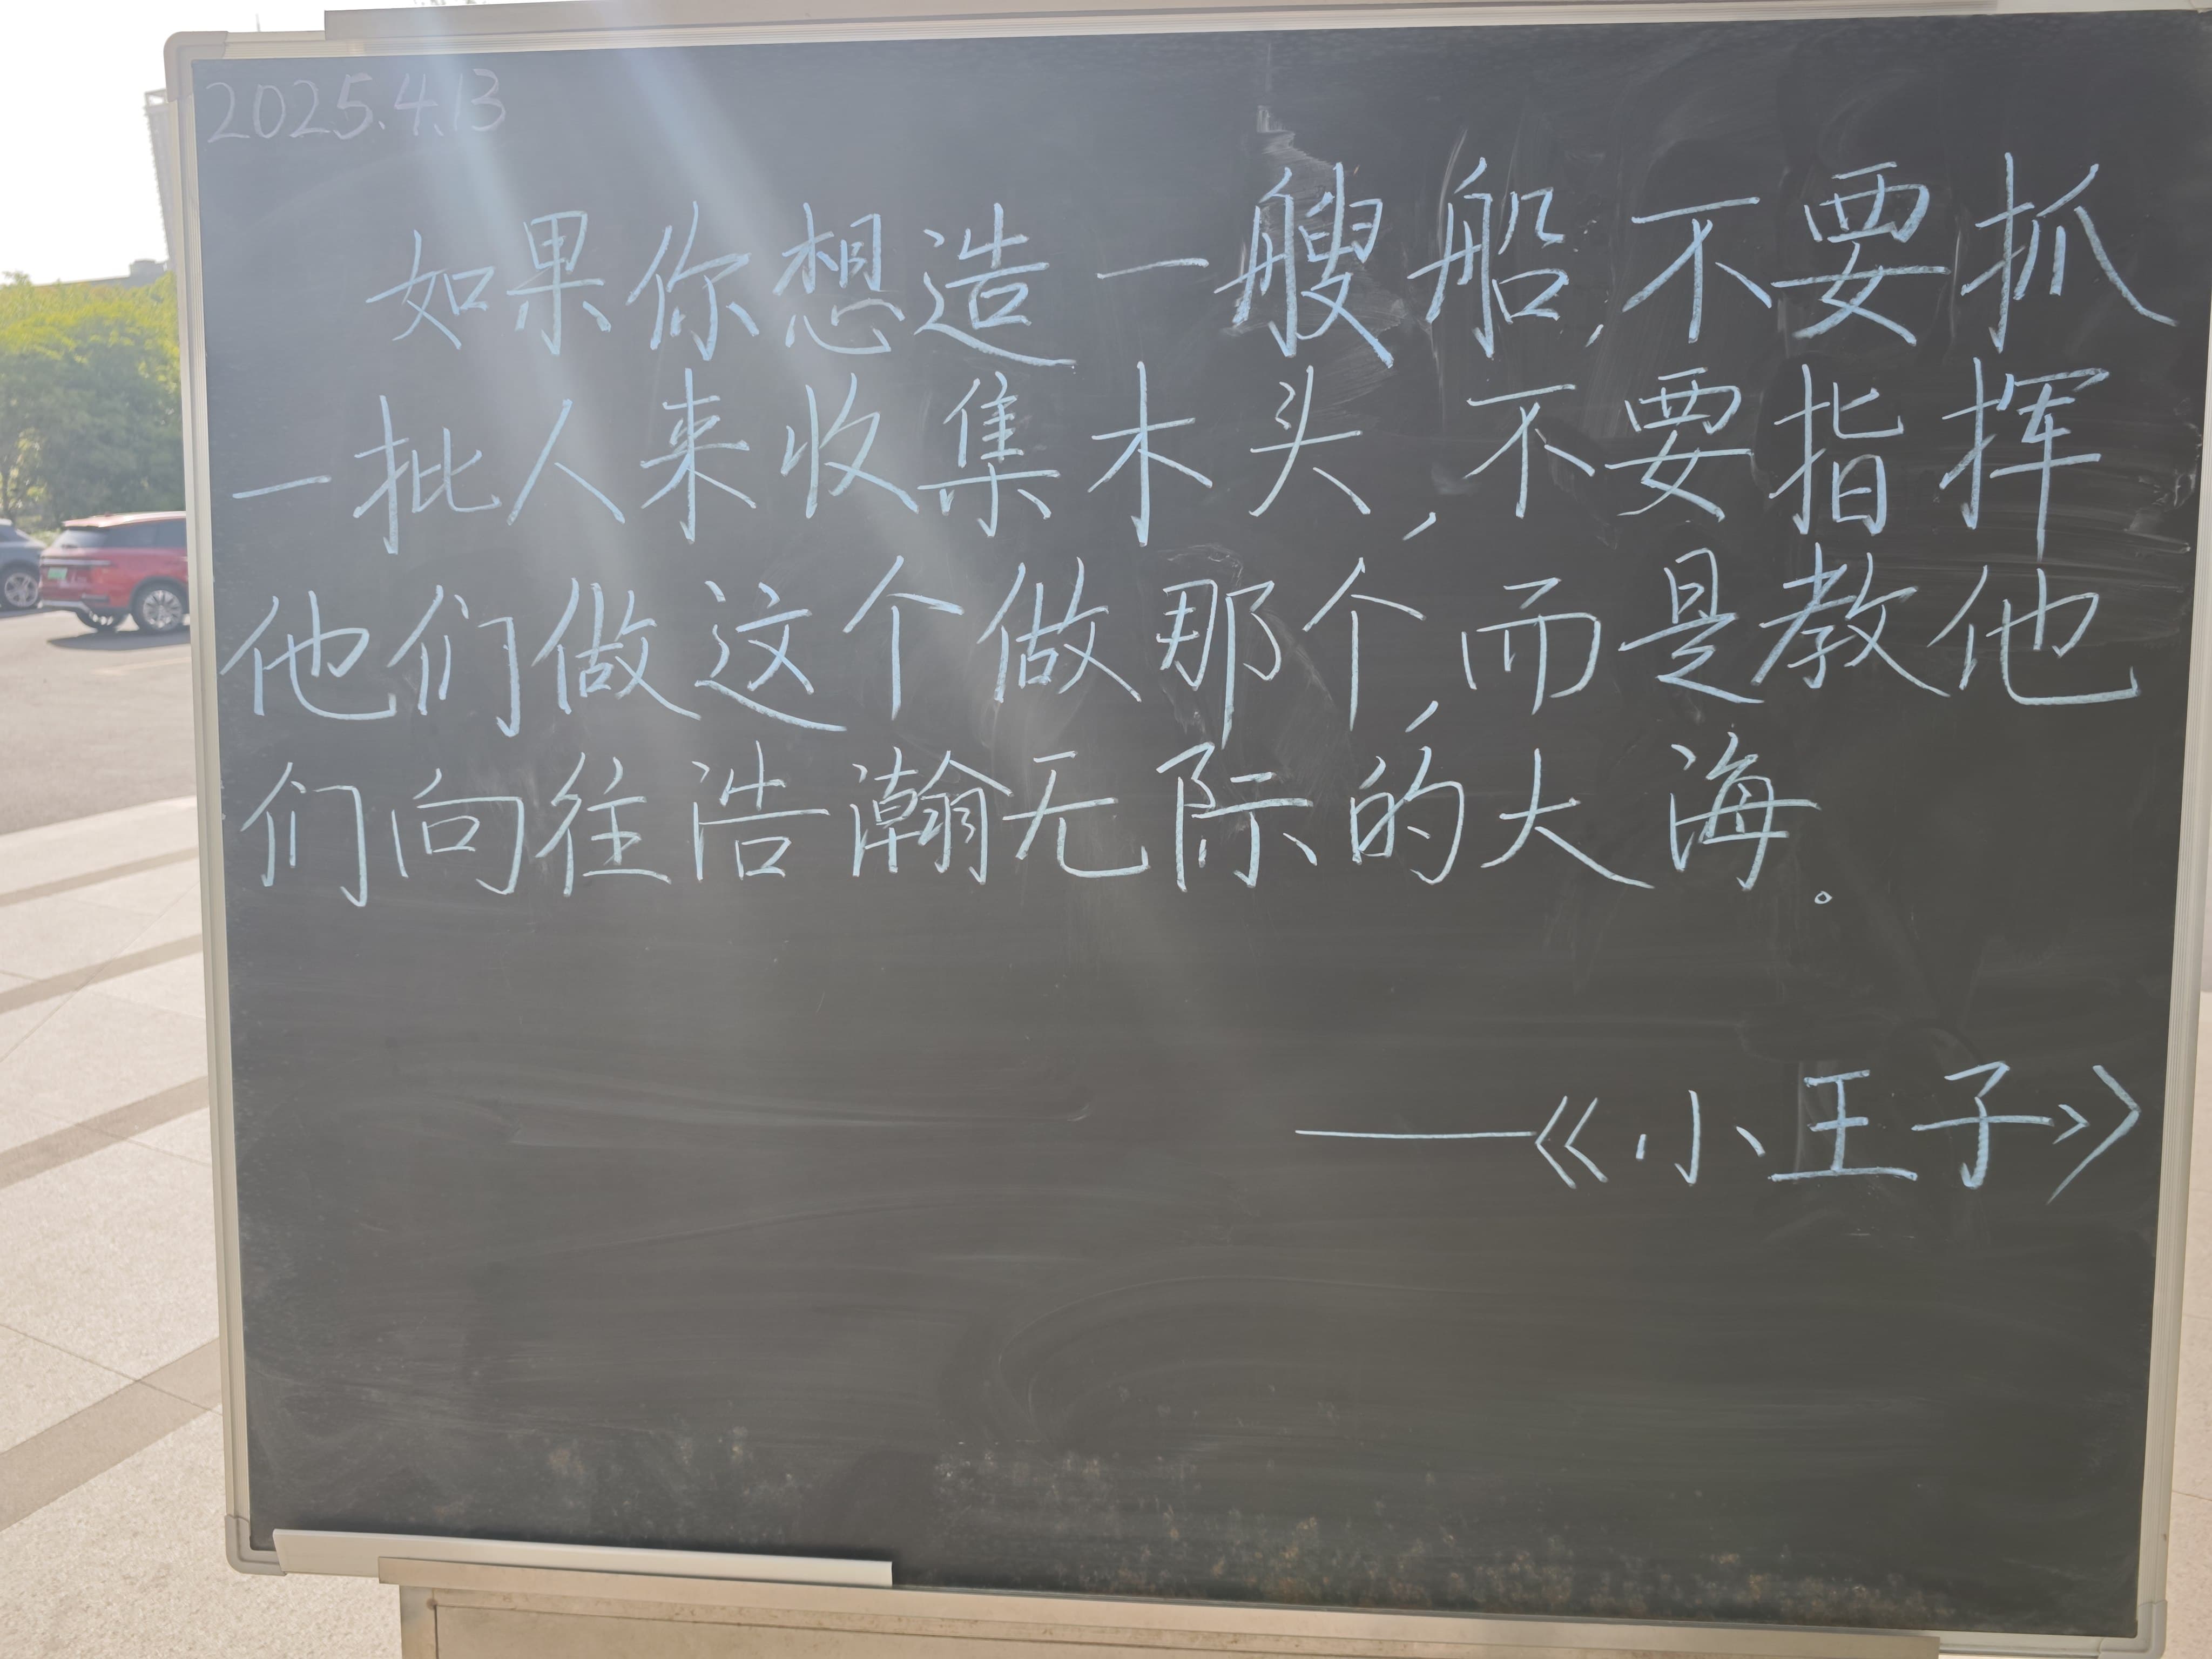 2025.4.13
如果你想造一艘船,不要抓
一批人来收集木头,不要指挥
他们做这个做那个,而是教他
们向往浩瀚无际的大海。
——《小王子》